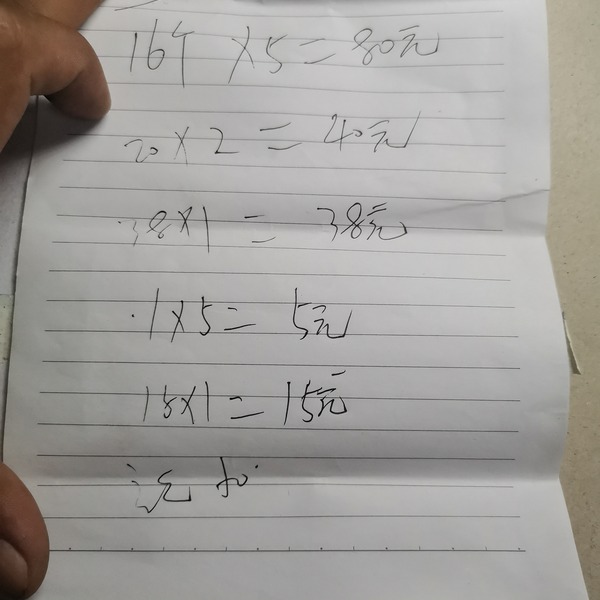 16个 ×5=80元
20×2=40元
38×1=38元
1×5=5元
15×1=15元